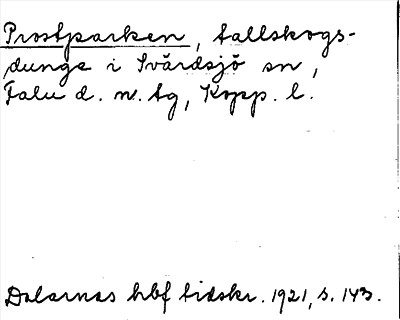 Prostparken, tallskogs-
dunge i Svärdsjö sn,
Falu d. n. tg, Kopp. l.
Dalarnas hbf tidskr. 1921, s. 143.